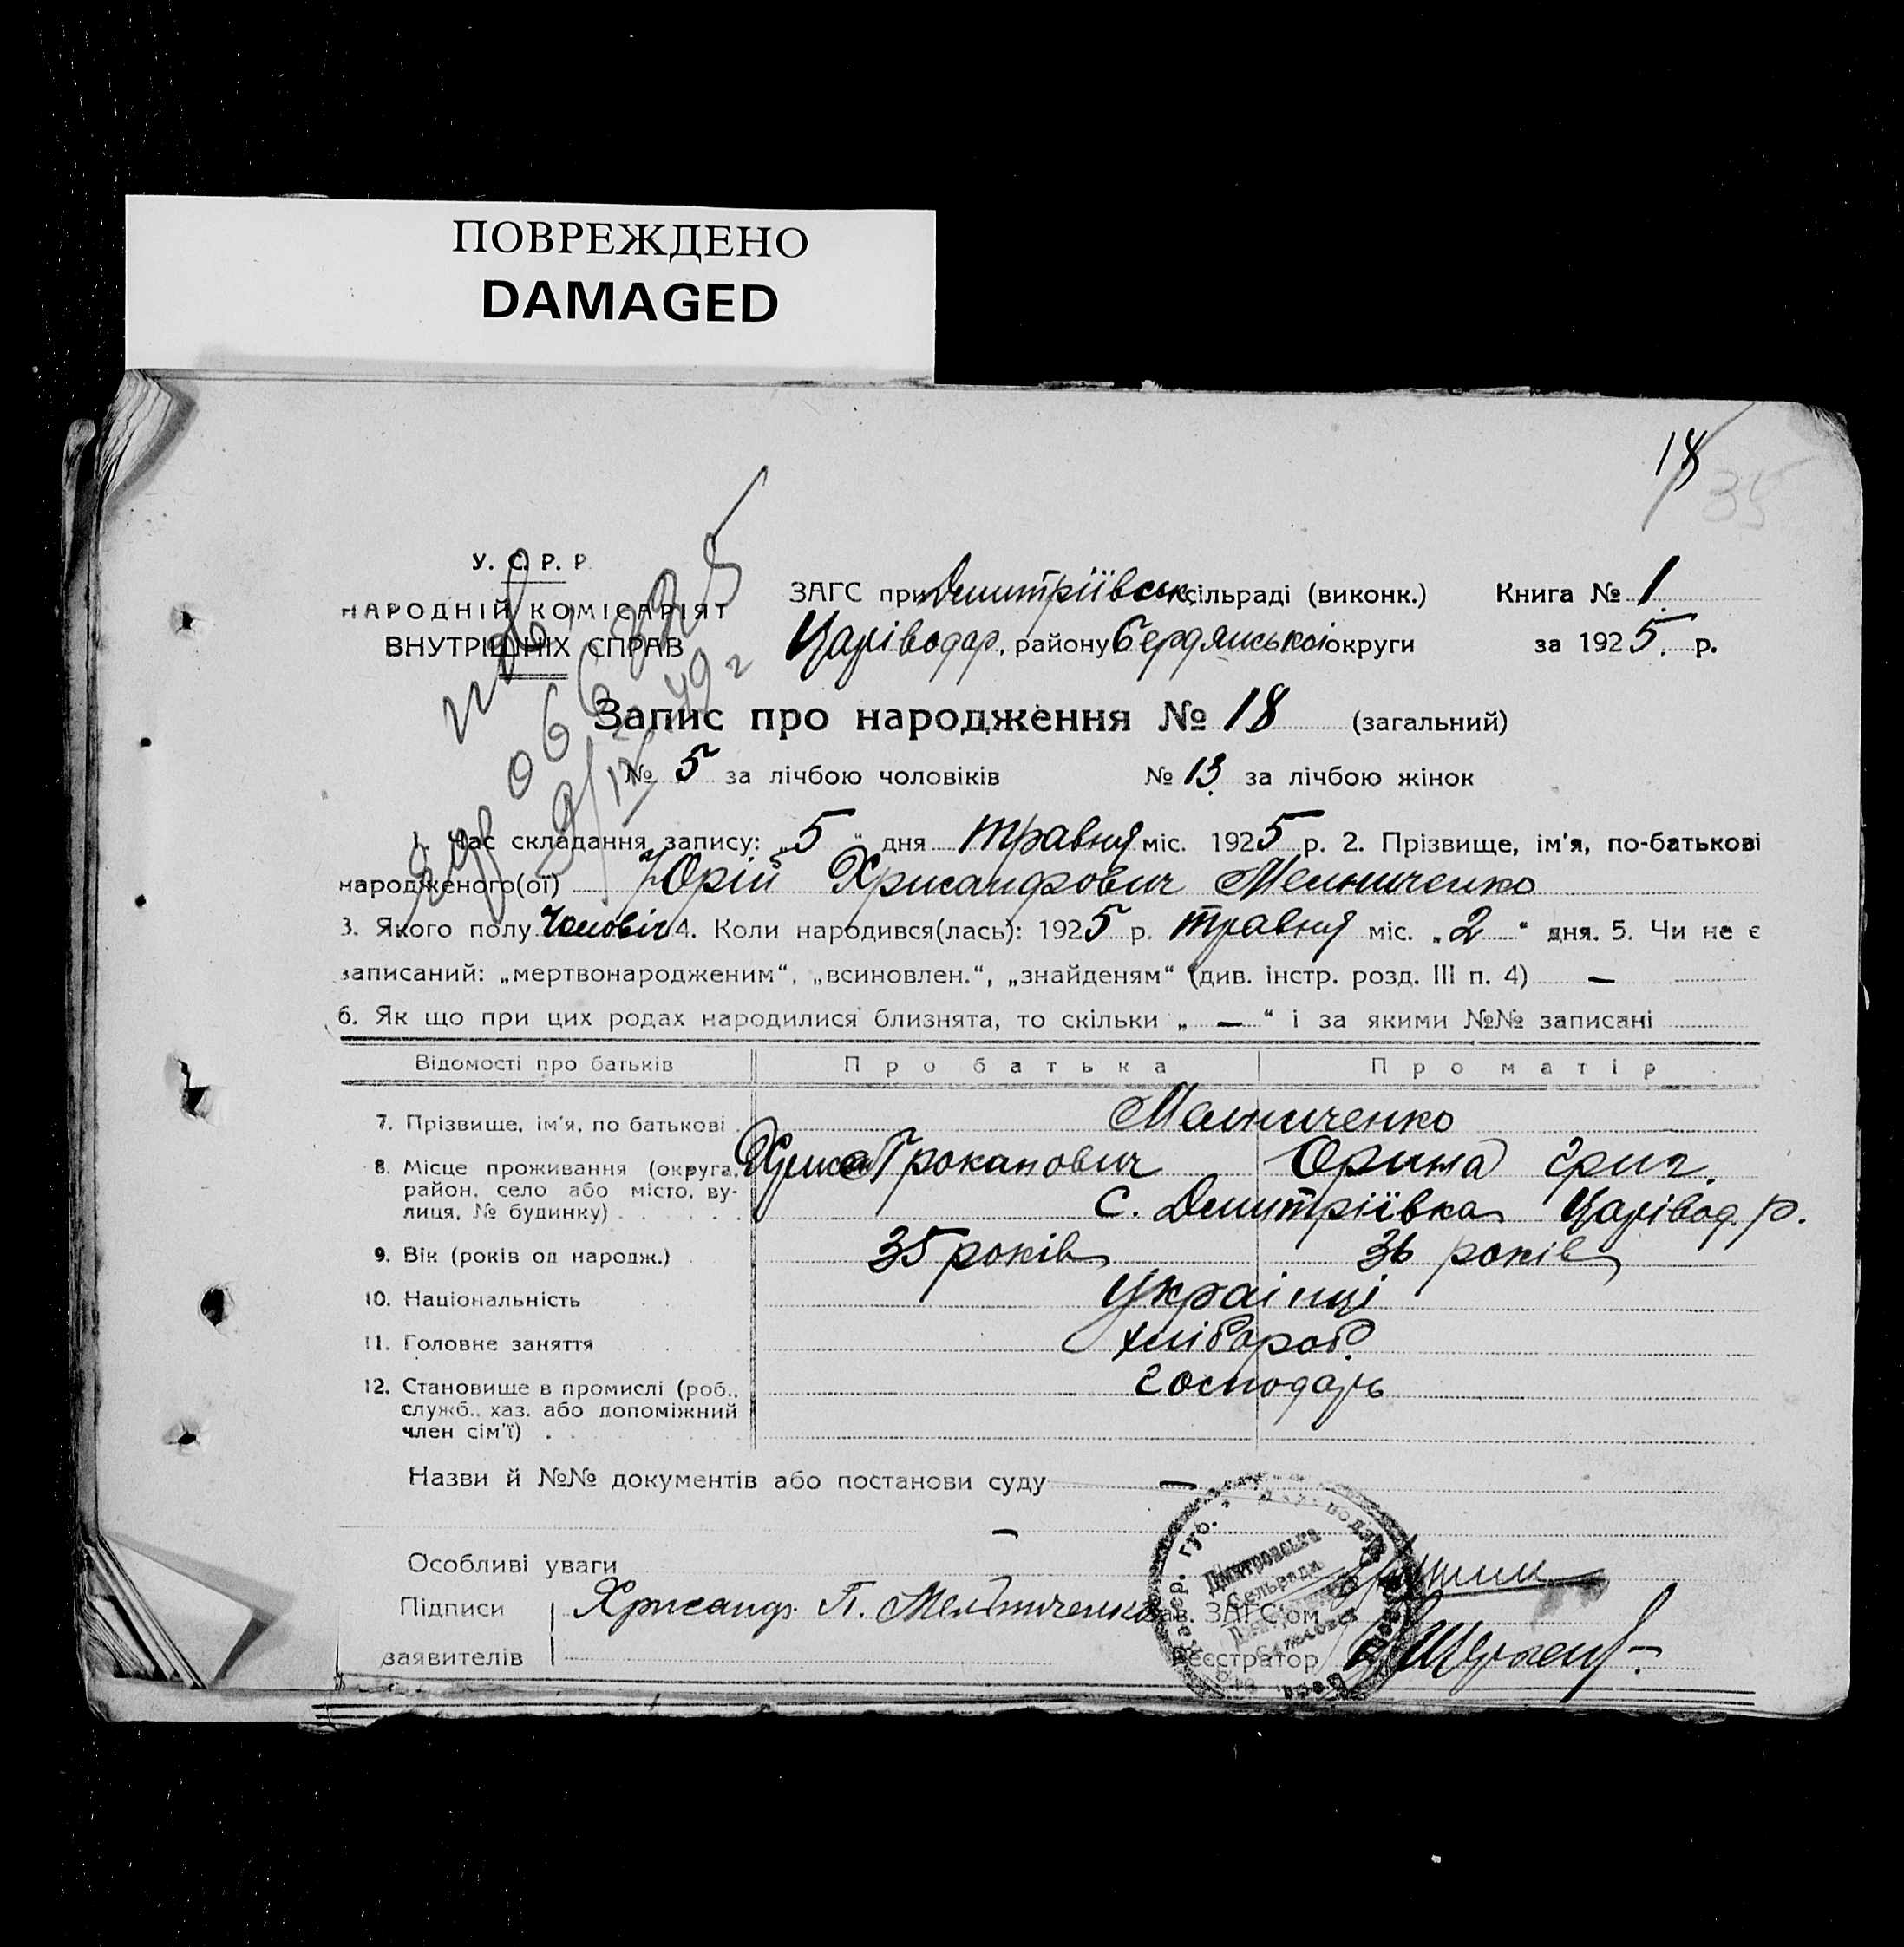 ПОВРЕЖДЕНО
DAMAGED
18
35
У. С. Р. Р.
НАРОДНІЙ КОМІСАРІЯТ
ВНУТРІШНІХ СПРАВ
ЗАГС при Дмитріївськ. сільраді (виконк.) Книга № 1.
Царіводар. району Бердянської округи за 1925. р.
Запис про народження № 18 (загальний)
№ 5 за лічбою чоловіків № 13 за лічбою жінок
1. Час складання запису: „5“ дня травня міс. 1925 р. 2. Прізвище, ім'я, по-батькові
народженого(ої) Юрій Хрисанфович Мельниченко
3. Якого полу Чоловіч 4. Коли народився(лась): 1925 р. травня міс. „2“ дня. 5. Чи не є
записаний: „мертвонародженим“, „всиновлен.“, „знайденям“ (див. інстр. розд. III п. 4) —
6. Як що при цих родах народилися близнята, то скільки „ — “ і за якими №№ записані
Відомості про батьків Про батька Про матір
7. Прізвище, ім'я, по батькові Мельниченко
8. Місце проживання (округа, Орина Григ.
район, село або місто, ву- с. Дмитріївка Царівод. р.
лиця, № будинку)
9. Вік (років од народж.) 35 років 36 років
10. Національність Українці
11. Головне заняття хлібороб.
12. Становище в промислі (роб., господарь
служб., хаз. або допоміжний
член сім'ї)
Назви й №№ документів або постанови суду —
—
Особливі уваги
Підписи Хрисанф. П. Мельниченко Зав. ЗАГС'ом
заявителів Реєстратор
Дмитровська
Сельрада